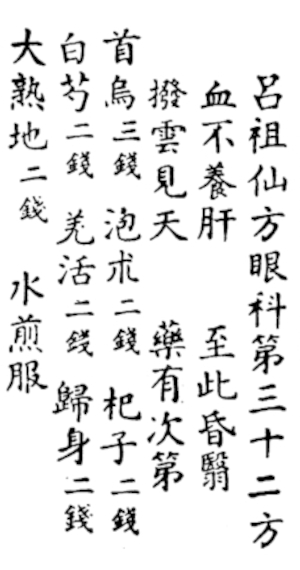 呂祖仙方眼科第三十二方
血不養肝 至此昏翳
撥雲見天 藥有次第
首烏三錢 泡朮二錢 杞子二錢
白芍二錢 羌活二錢 歸身二錢
大熟地二錢 水煎服